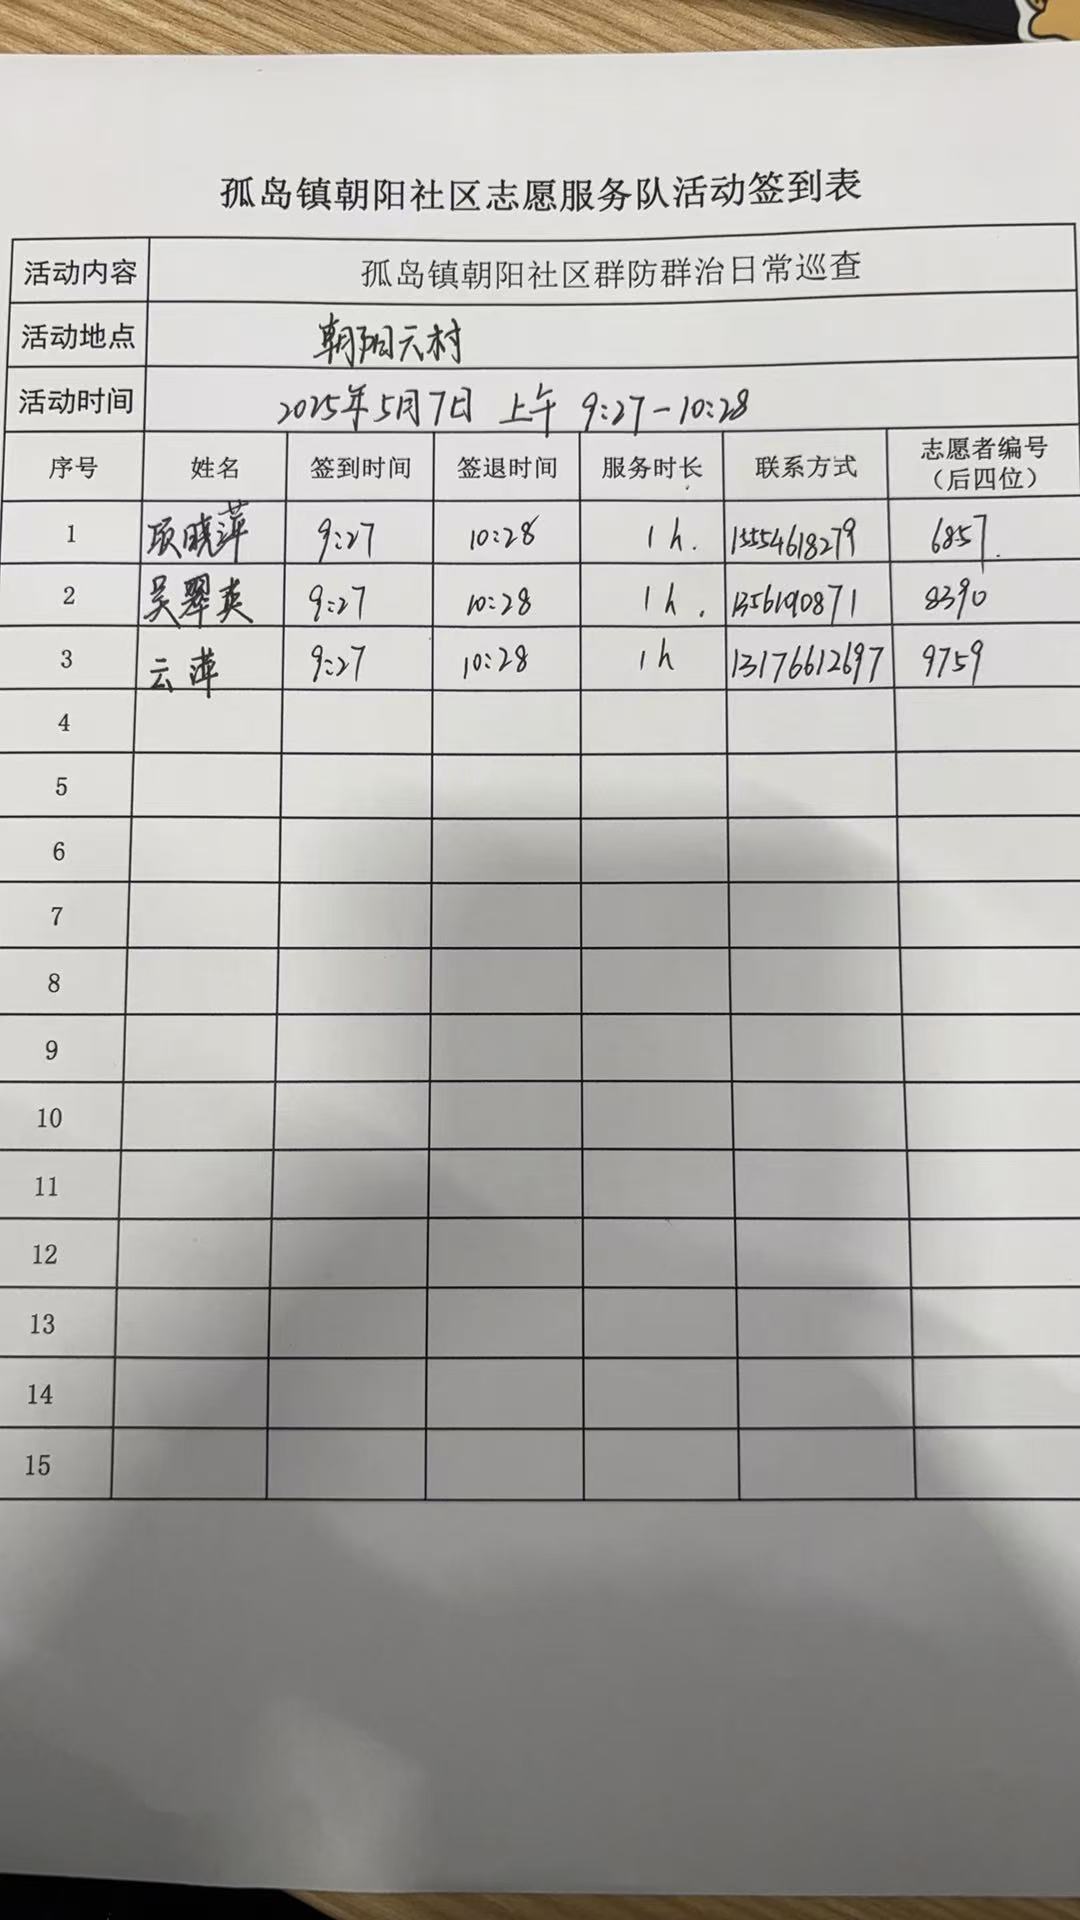 孤岛镇朝阳社区志愿服务队活动签到表
活动内容 孤岛镇朝阳社区群防群治日常巡查
活动地点 朝阳六村
活动时间 2025年5月7日 上午 9:27-10:28
序号 姓名 签到时间 签退时间 服务时长 联系方式 志愿者编号（后四位）
1 项晓萍 9:27 10:28 1h. 15554618279 6857.
2 吴翠英 9:27 10:28 1h. 8390
3 云萍 9:27 10:28 1h 13176612697 9759
4
5
6
7
8
9
10
11
12
13
14
15